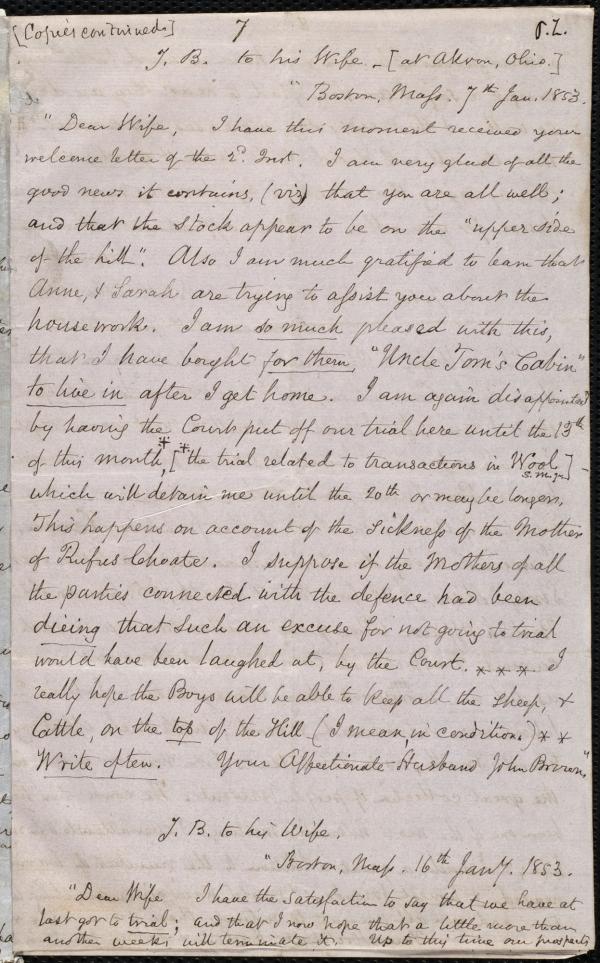 [Copies continued.] 7 S.L.
J. B. to his Wife. - [at Akron, Ohio.]
"Boston, Mass. 7th Jan. 1853.
"Dear Wife, I have this moment received your
welcome letter of the 2d. Inst. I am very glad of all the
good news it contains, (viz) that you are all well;
and that the Stock appear to be on the "upper side
of the hill". Also I am much gratified to learn that
Anne, & Sarah are trying to assist you about the
housework. I am so much pleased with this,
that I have bought for them, "Uncle Tom's Cabin"
to live in after I get home. I am again disappointed
by having the Court put off our trial here until the 13th
of this month, [* the trial related to transactions in Wool] -
S. M. Jr.
which will detain me until the 20th or maybe longer.
This happens on account of the Sickness of the Mother
of Rufus Choate. I suppose if the Mothers of all
the parties connected with the defence had been
dieing that such an excuse for not going to trial
would have been laughed at, by the Court. * * * * I
really hope the Boys will be able to keep all the Sheep, &
Cattle, on the top of the Hill (I mean, in condition.) * *
Write often. Your Affectionate Husband John Brown."
J. B. to his Wife.
"Boston, Mass. 16th Jany. 1853.
"Dear Wife I have the satisfaction to say that we have at
last got to trial; and that I now hope that a little more than
another week will terminate it. Up to this time our prospects